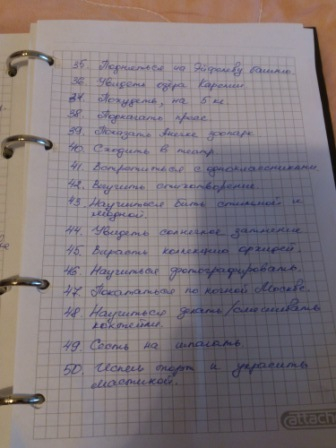 35. Подняться на Эйфелеву башню.
36. Увидеть озёра Карелии
37. Похудеть, на 5 кг.
38. Подкачать пресс
39. Показать зоопарк
40. Сходить в театр
41. Встретиться с одноклассниками.
42. Выучить стихотворение
43. Научиться быть стильной и
модной.
44. Увидеть солнечное затмение
45. Вырастить коллекцию орхидей.
46. Научиться фотографировать.
47. Покататься по ночной Москве.
48. Научиться делать/смешивать
коктейли.
49. Сесть на шпагат
50. торт и украсить
мастикой.
attach